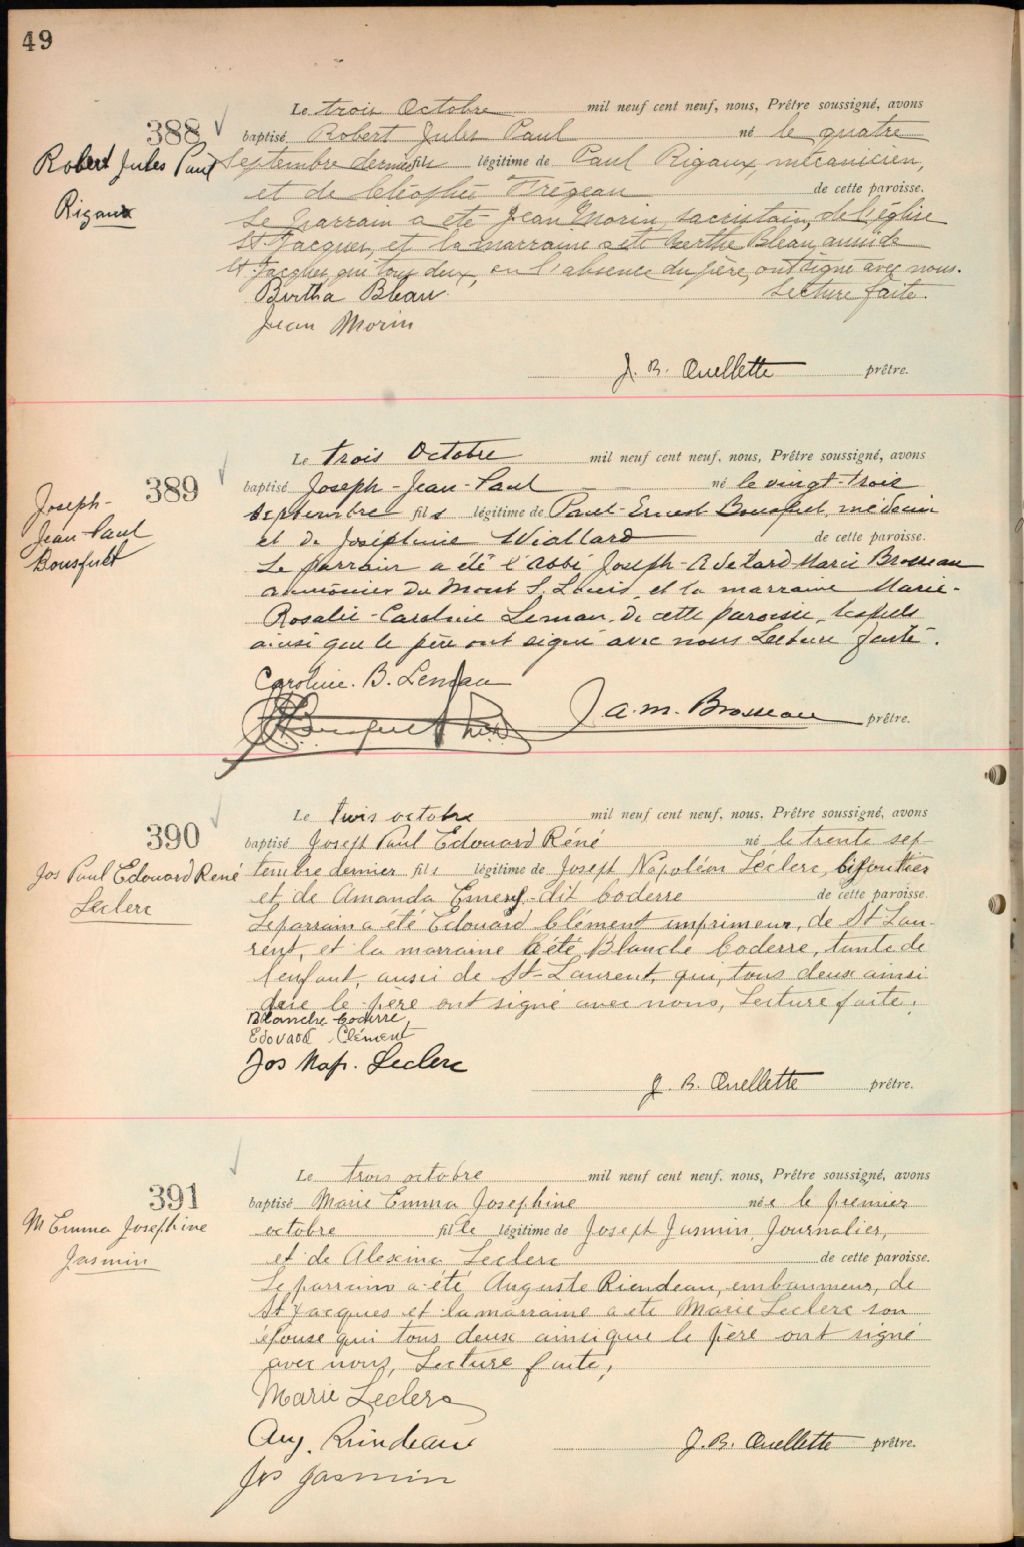 49
388
Robert Jules Paul
Rigaux
Le trois Octobre mil neuf cent neuf, nous, Prêtre soussigné, avons
baptisé Robert Jules Paul né le quatre
Septembre dernier fils légitime de Paul Rigaux, mécanicien,
et de Cléophée Frégeau de cette paroisse.
Le parrain a été Jean Morin, sacristain, de l'église
St Jacques, et la marraine a été Berthe Bleau, aussi de
St Jacques, qui tous deux, en l'absence du père, ont signé avec nous.
Lecture faite.
Bertha Bleau
Jean Morin
J. B. Ouellette prêtre.
389
Joseph-
Jean-Paul
Bousquet
Le trois Octobre mil neuf cent neuf, nous, Prêtre soussigné, avons
baptisé Joseph-Jean-Paul né le vingt-trois
septembre fils légitime de Paul-Ernest Bousquet, médecin
et de Joséphine Wiallard de cette paroisse.
Le parrain a été l'abbé Joseph-Adélard-Marie Brosseau
aumônier du Mont S. Louis, et la marraine Marie-
Rosalie-Caroline Leman, de cette paroisse, lesquels
ainsi que le père ont signé avec nous Lecture faite.
Caroline. B. Leman
J. a. m. Brosseau prêtre.
390
Jos Paul Edouard René
Leclerc
Le trois octobre mil neuf cent neuf, nous, Prêtre soussigné, avons
baptisé Joseph Paul Edouard Réné né le trente sep
tembre dernier fils légitime de Joseph Napoléon Leclerc, bijoutier
et de Amanda Emery-dit Coderre de cette paroisse.
Le parrain a été Edouard Clément imprimeur, de St Lau-
rent, et la marraine a été Blanche Coderre, tante de
l'enfant, aussi de St-Laurent, qui, tous deux ainsi
que le père ont signé avec nous, Lecture faite.
Blanche Coderre
Edouard Clément
Jos Nap. Leclerc
J. B. Ouellette prêtre.
391
M Emma Josephine
Jasmin
Le trois octobre mil neuf cent neuf, nous, Prêtre soussigné, avons
baptisé Marie Emma Josephine née le premier
octobre fille légitime de Joseph Jasmin, Journalier,
et de Alexina Leclerc de cette paroisse.
Le parrain a été Auguste Riendeau, embaumeur, de
St Jacques et la marraine a été Marie Leclerc son
épouse qui tous deux ainsi que le père ont signé
avec nous, Lecture faite,
Marie Leclerc
Aug. Riendeau
Jos Jasmin
J. B. Ouellette prêtre.